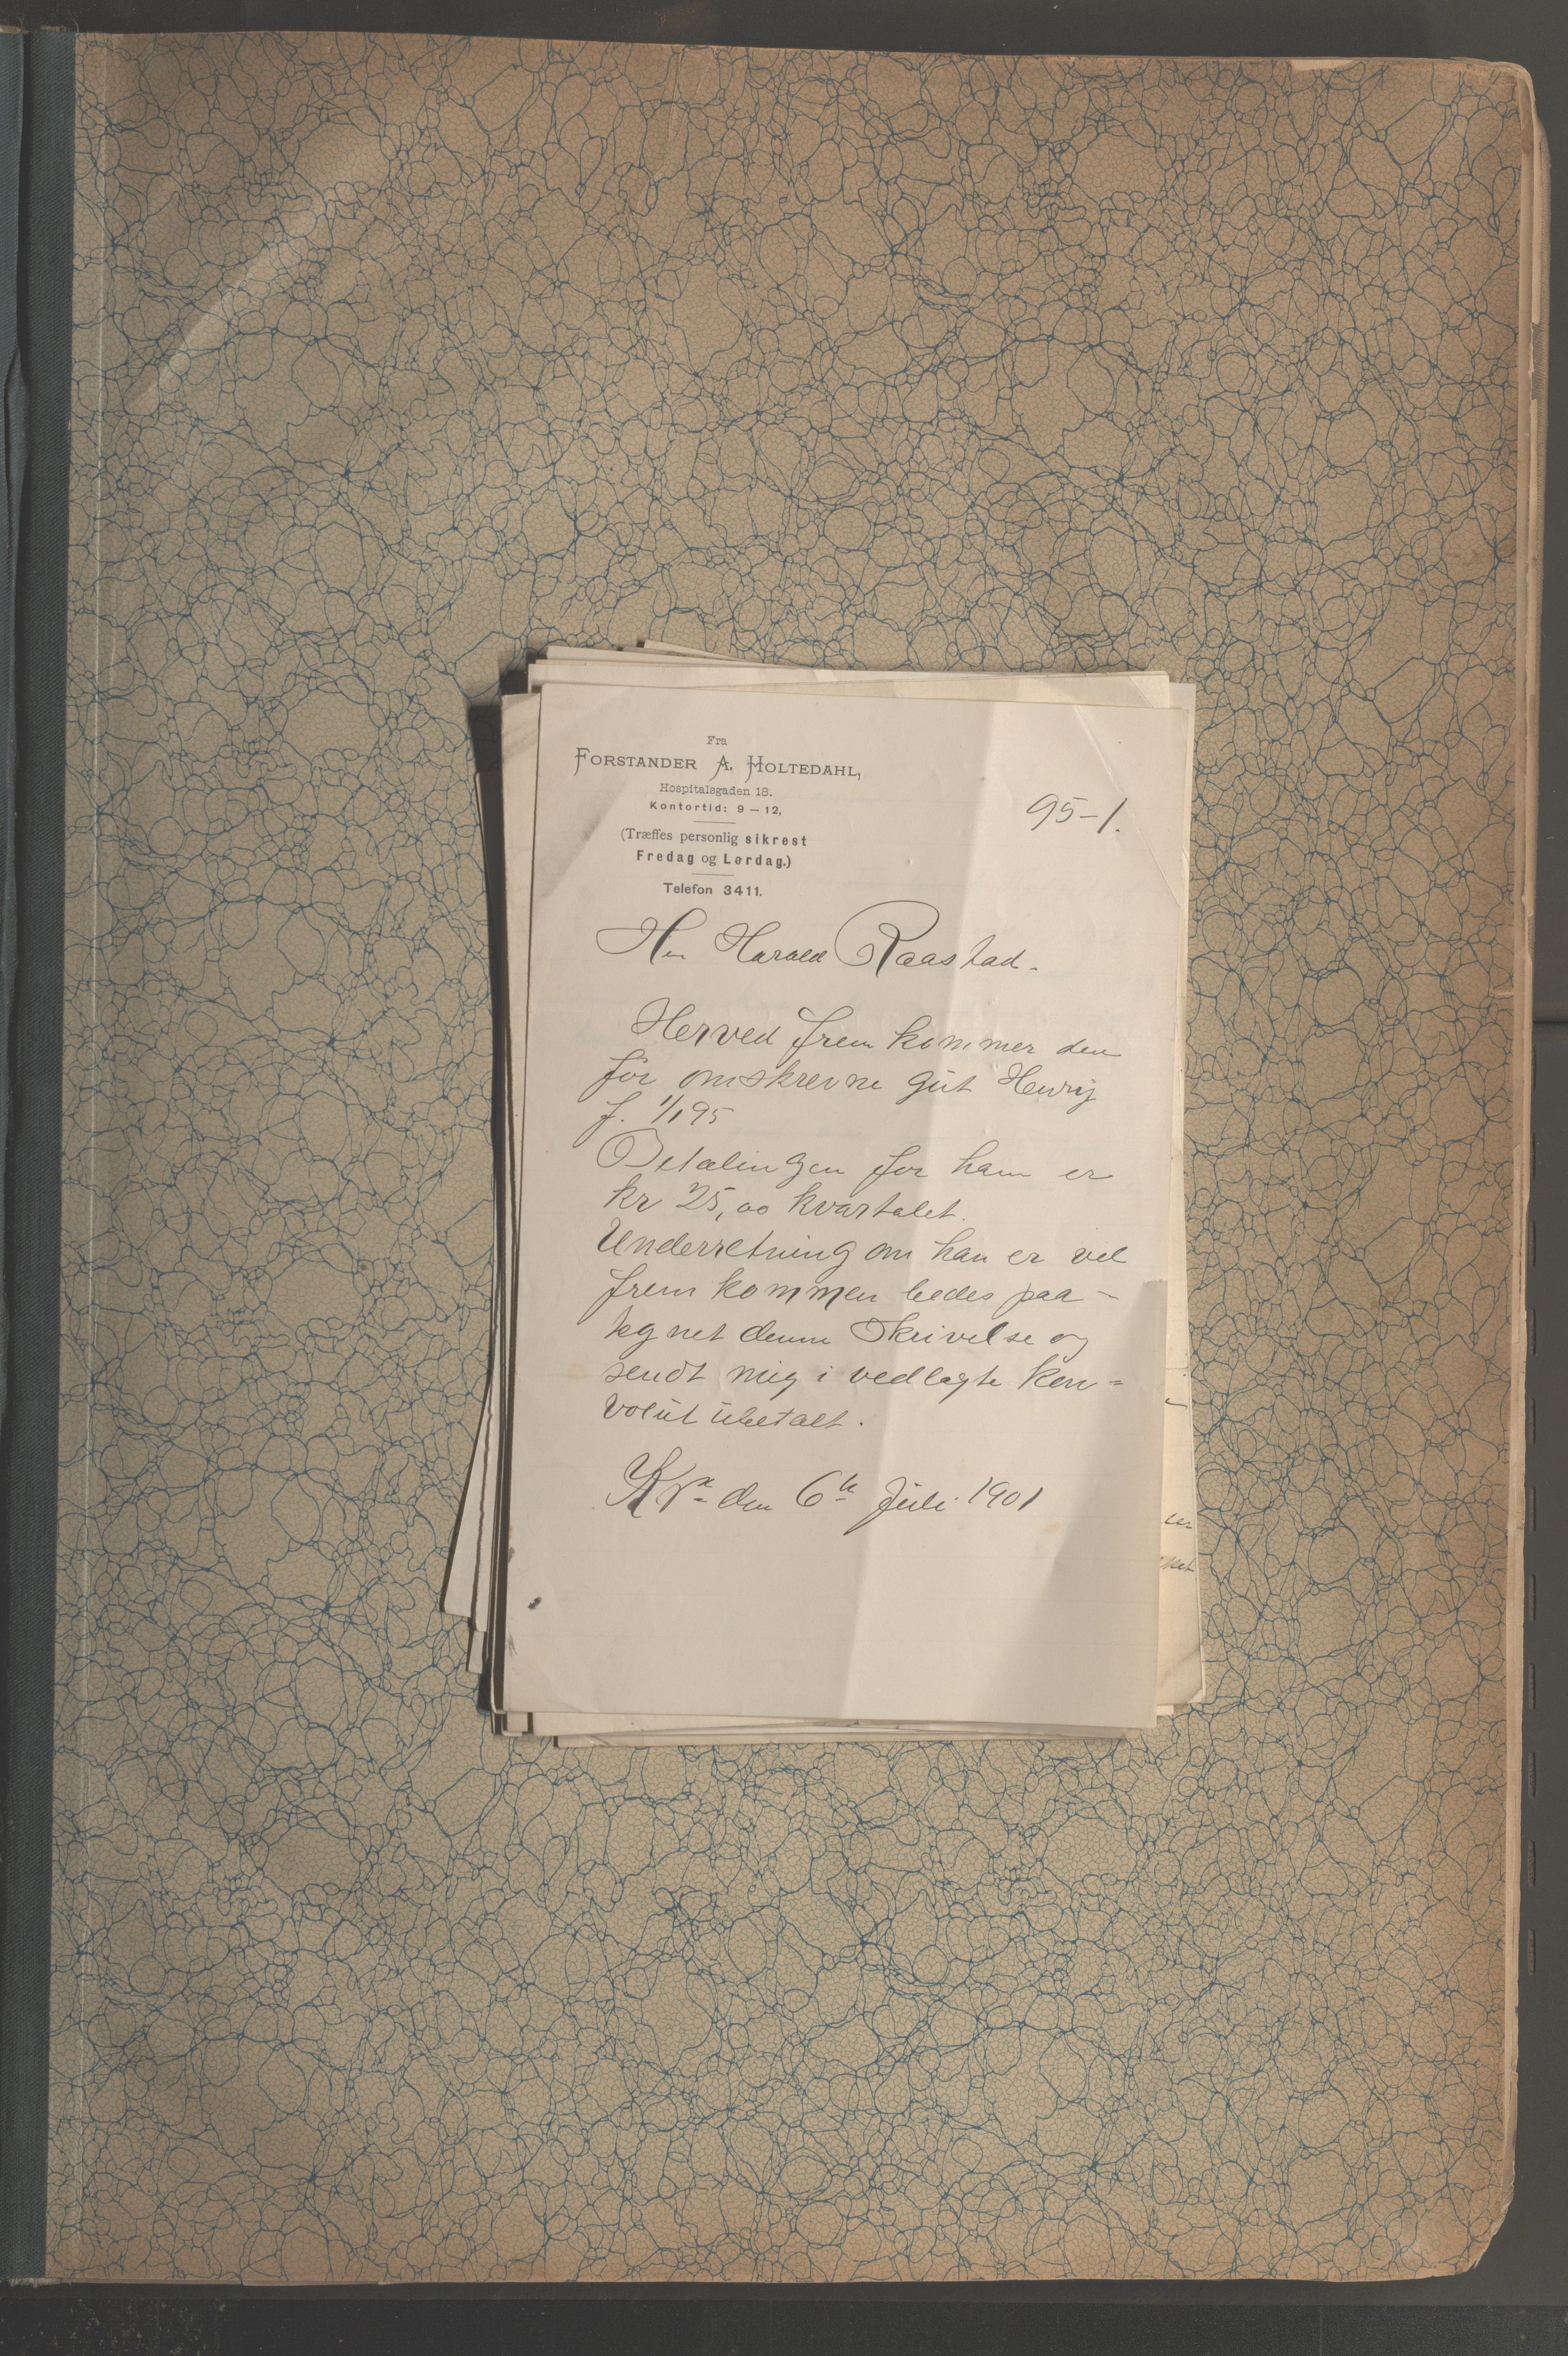 Fra
FORSTANDER A. HOLTEDAHL,
Hospitalsgaden 18.
Kontortid: 9 – 12,
(Træffes personlig sikrest
Fredag og Lørdag.)
Telefon 3411.
95-1.
Hr Harald Raastad.
Herved frem kommer den
för omskrevne gut Henry
f. 1/1 95
Betalingen for ham er
kr 25,00 kvartalet.
Underretning om han er vel
frem kommen bedes paa-
tegnet denne Skrivelse og
sendt mig i vedlagte kon=
volut ubetalt.
Kra den 6te Juli 1901